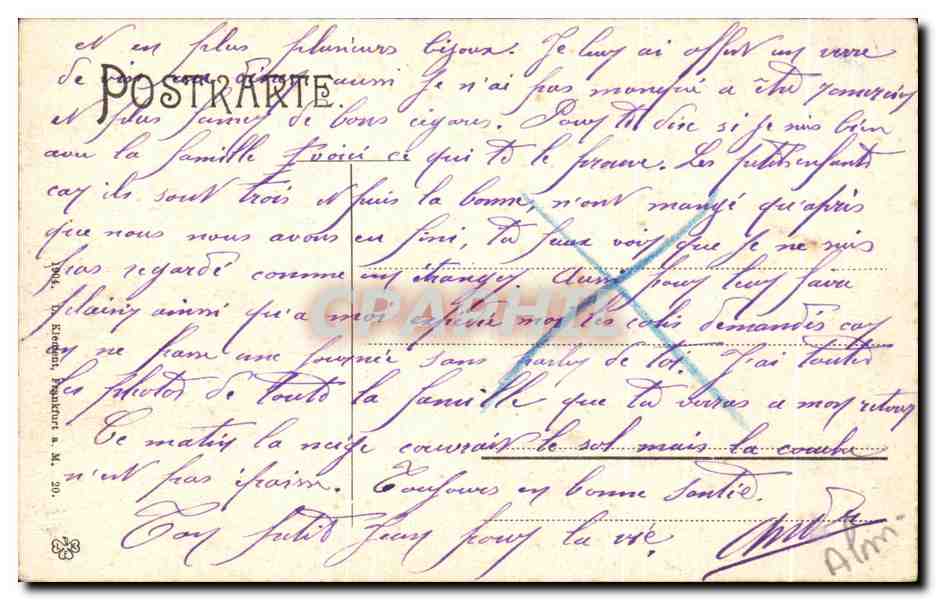 et en plus plusieurs bijoux. Je leur ai offert un verre
de vin aussi je n'ai pas manqué a être
POSTKARTE.
et plus fumer de bons cigares. Pour te dire si je suis bien
avec la famille voici ce qui te le prouve. Les petits enfants
car ils sont trois et puis la bonne, n'ont mangé qu'après
que nous nous avons eu fini, tu peux voir que je ne suis
pas regardé comme un étranger. Aussi pour leur faire
plaisir ainsi qu'a moi expédie moi les colis demandés car
je ne passe une journée sans parler de toi. J'ai toutes
les photos de toute la famille que tu verras a mon retour
Ce matin la neige couvrait le sol mais la couche
n'est pas épaisse. Toujours en bonne santée.
Ton petit Jean pour la vie.
Alm.
1904. L. Klement, Frankfurt a. M. 20.
CPARAMA